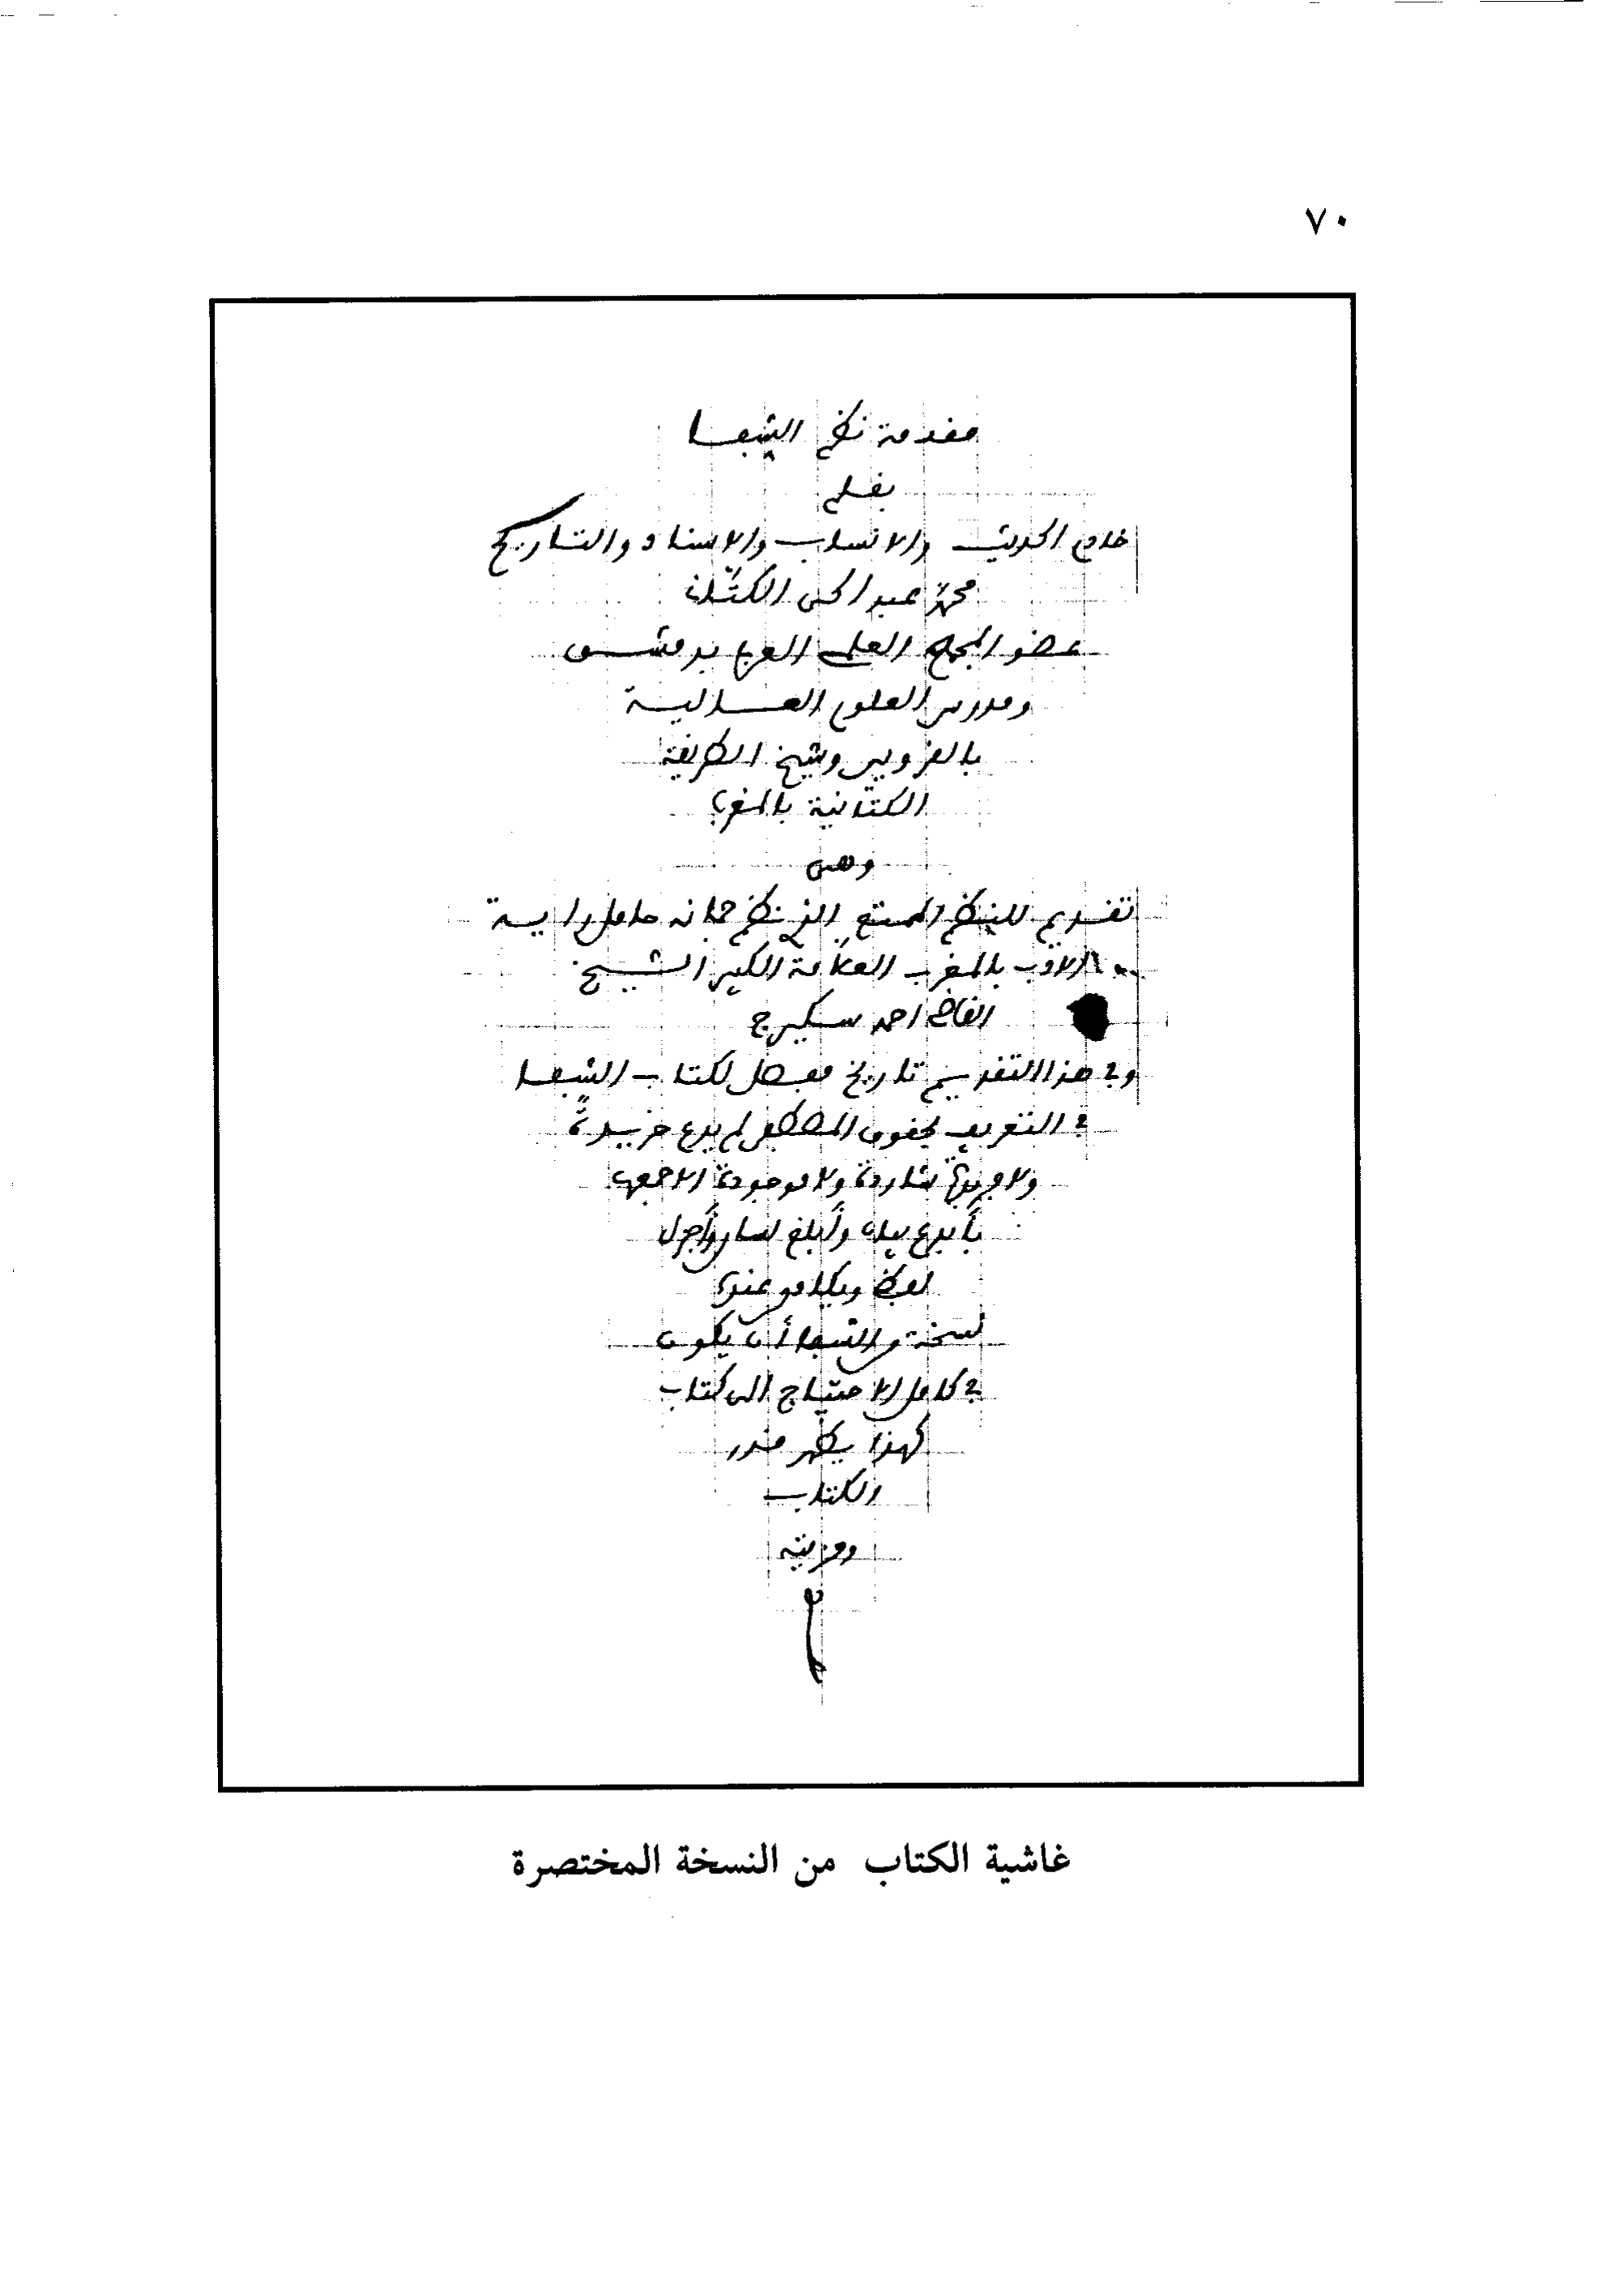 ٧٠
مقدمة نظم الشفا
بقلم
خادم الحديث والانساب والاسناد والتاريخ
محمد عبد الحي الكتّاني
عضو المجمع العلمي العربي بدمشق
ومدرس العلوم العالية
بالقرويين وشيخ الطريقة
الكتّانية بالمغرب
وهي
تقديم للنظم الممتع الذي نظم جمانه حامل راية
الأدب بالمغرب العلّامة الكبير الشيخ
القاضي احمد سكيرج
وفي هذا التقديم تاريخ مفصل لكتاب الشفا
في التعريف بحقوق المصطفى لم يدع خريدة
ولا فريدة شاردة ولا موجودة الا جمعها
بأبدع بيان وأبلغ لسان وأجزل
لفظ ويكاد من عنده
نسخة من الشفا أن يكون
في كامل الاحتياج الى كتاب
كهذا يظهر قدر
الكتاب
ومزيته
غاشية الكتاب من النسخة المختصرة